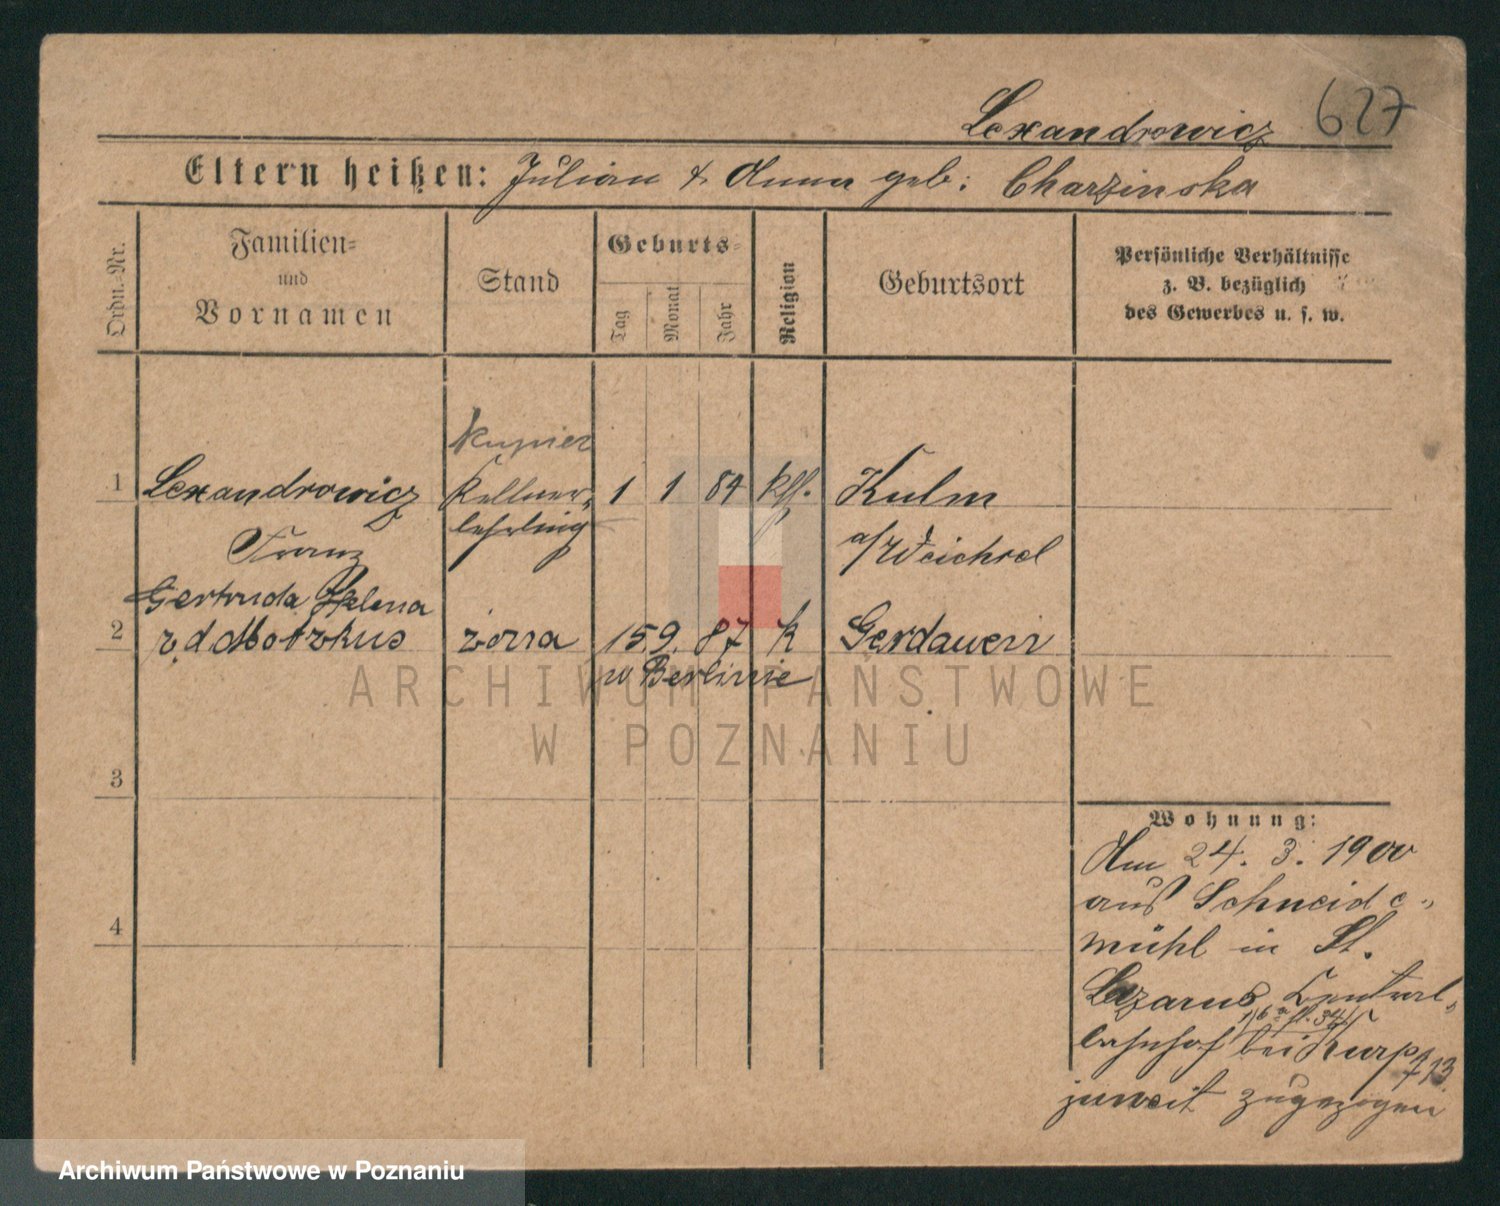 Lexandrowicz 627
Eltern heißen: Julian & Anna geb: Charzinska
Ordn.-Nr.
Familien-
und
Vornamen
Stand
Geburts-
Tag
Monat
Jahr
Religion
Geburtsort
Persönliche Verhältnisse
z. B. bezüglich
des Gewerbes u. s. w.
kupiec
1 Lexandrowicz Kellner- 1 1 84 kth. Kulm
lehrling
Franz a/Weichsel
Gertruda Helena
2 z.d. Motzkus żona 15 9. 87 K Gerdauen
w Berlinie
3
4
Wohnung:
Am 24. 3. 1900
aus Schneide-
mühl in St.
Lazarus, Central-
bahnhof bei
zugezogen
ARCHIWUM PAŃSTWOWE
W POZNANIU
Archiwum Państwowe w Poznaniu